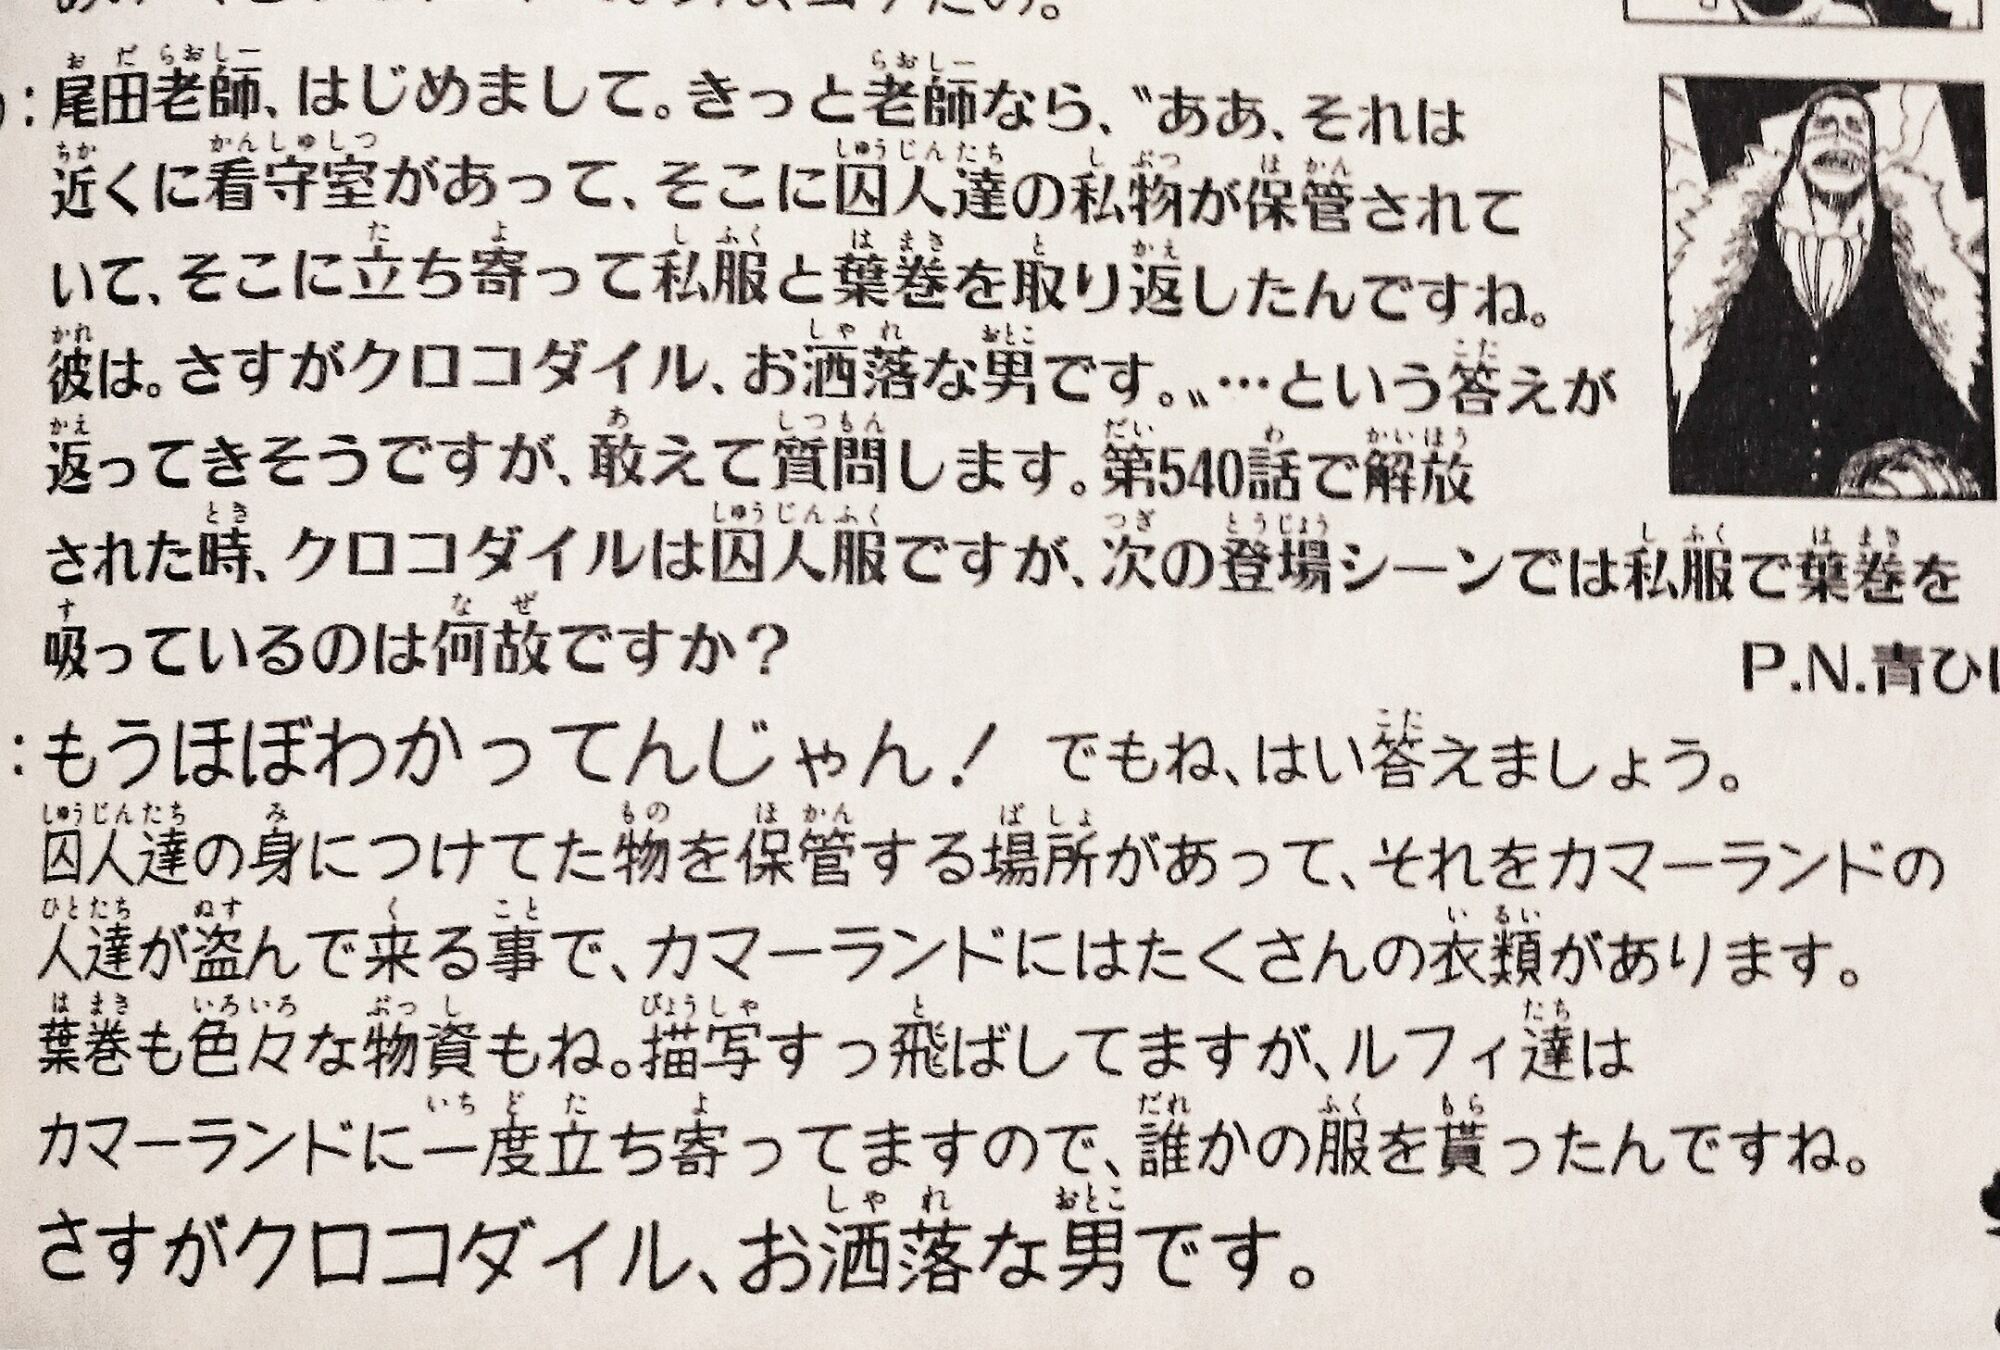 ：尾田老師、はじめまして。きっと老師なら、〝ああ、それは
近くに看守室があって、そこに囚人達の私物が保管されて
いて、そこに立ち寄って私服と葉巻を取り返したんですね。
彼は。さすがクロコダイル、お洒落な男です。〟…という答えが
返ってきそうですが、敢えて質問します。第540話で解放
された時、クロコダイルは囚人服ですが、次の登場シーンでは私服で葉巻を
吸っているのは何故ですか？
P.N.青ひ
：もうほぼわかってんじゃん！ でもね、はい答えましょう。
囚人達の身につけてた物を保管する場所があって、それをカマーランドの
人達が盗んで来る事で、カマーランドにはたくさんの衣類があります。
葉巻も色々な物資もね。描写すっ飛ばしてますが、ルフィ達は
カマーランドに一度立ち寄ってますので、誰かの服を貰ったんですね。
さすがクロコダイル、お洒落な男です。